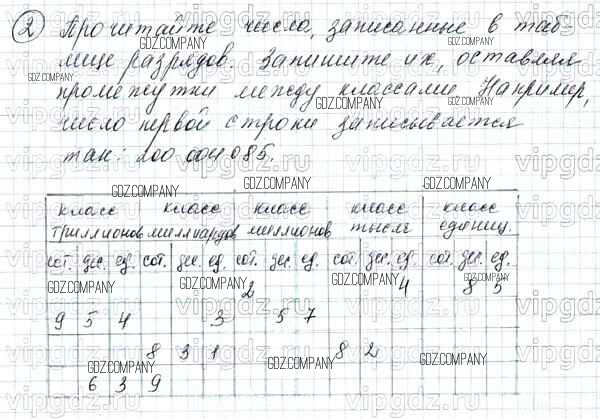 2 Прочитайте числа, записанные в таб-
лице разрядов. Запишите их, оставляя
промежутки между классами. Например,
число первой строки записывается
так: 200 004 085.
класс класс класс класс класс
триллионов миллиардов миллионов тысяч единиц.
сот. дес. ед. сот. дес. ед. сот. дес. ед. сот. дес. ед. сот. дес. ед.
2 4 8 5
9 5 4 3 5 7
8 3 1 8 2
6 3 9
GDZ.COMPANY
vipgdz